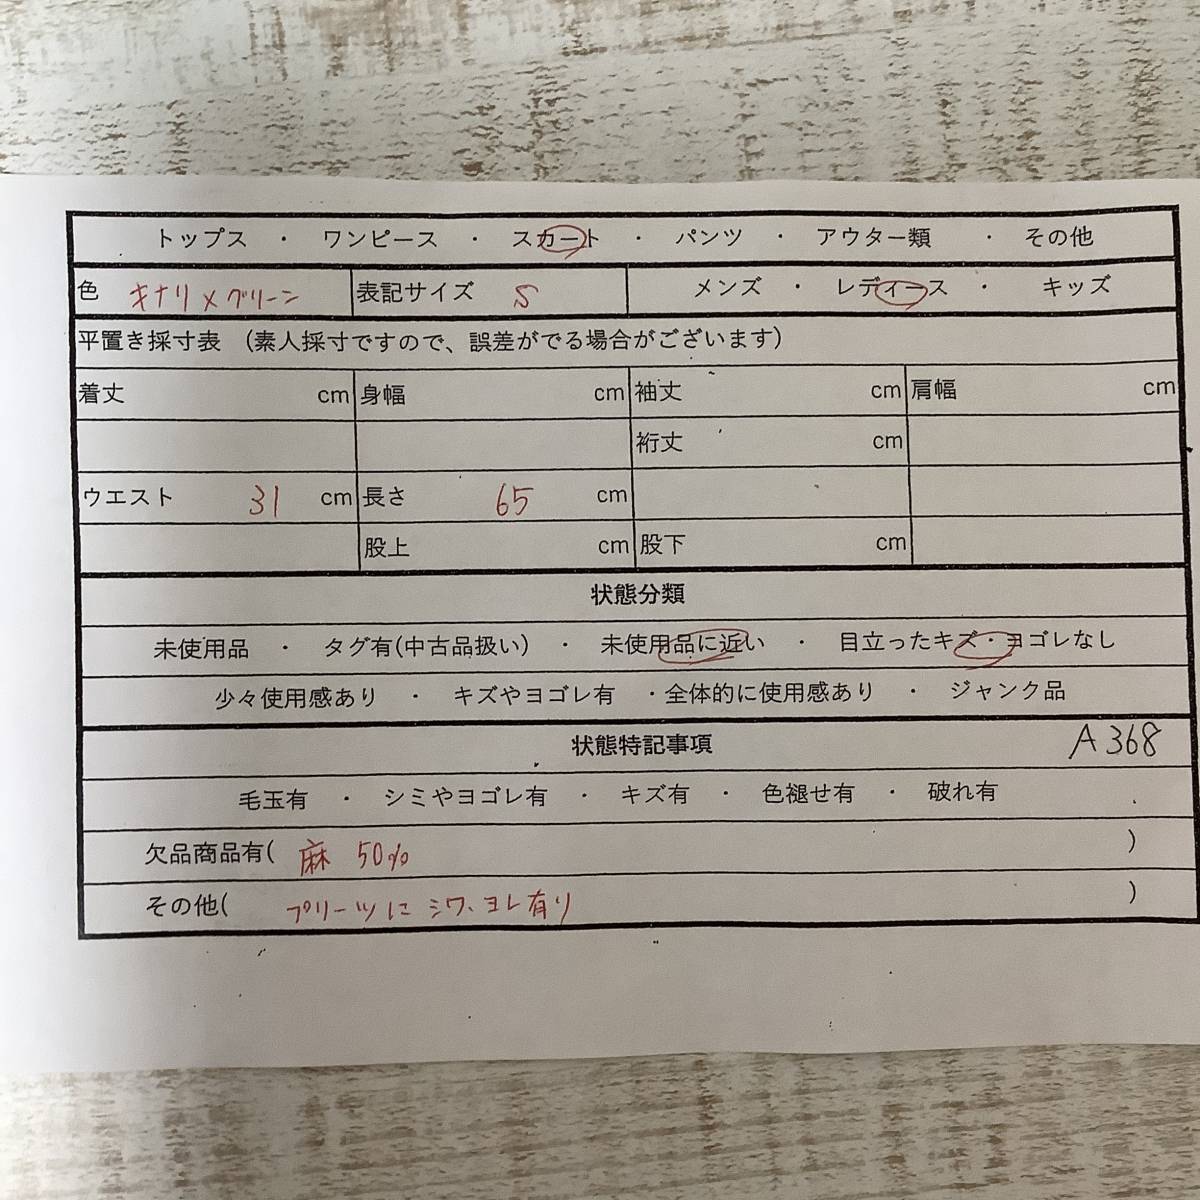 トップス ・ ワンピース ・ スカート ・ パンツ ・ アウター類 ・ その他
色 キナリ×グリーン 表記サイズ S メンズ ・ レディース ・ キッズ
平置き採寸表 (素人採寸ですので、誤差がでる場合がございます)
着丈 cm 身幅 cm 袖丈 cm 肩幅 cm
裄丈 cm
ウエスト 31 cm 長さ 65 cm
股上 cm 股下 cm
状態分類
未使用品 ・ タグ有(中古品扱い) ・ 未使用品に近い ・ 目立ったキズ・ヨゴレなし
少々使用感あり ・ キズやヨゴレ有 ・全体的に使用感あり ・ ジャンク品
状態特記事項 A368
毛玉有 ・ シミやヨゴレ有 ・ キズ有 ・ 色褪せ有 ・ 破れ有
欠品商品有( 麻 50% )
その他( プリーツに シワ、ヨレ有り )